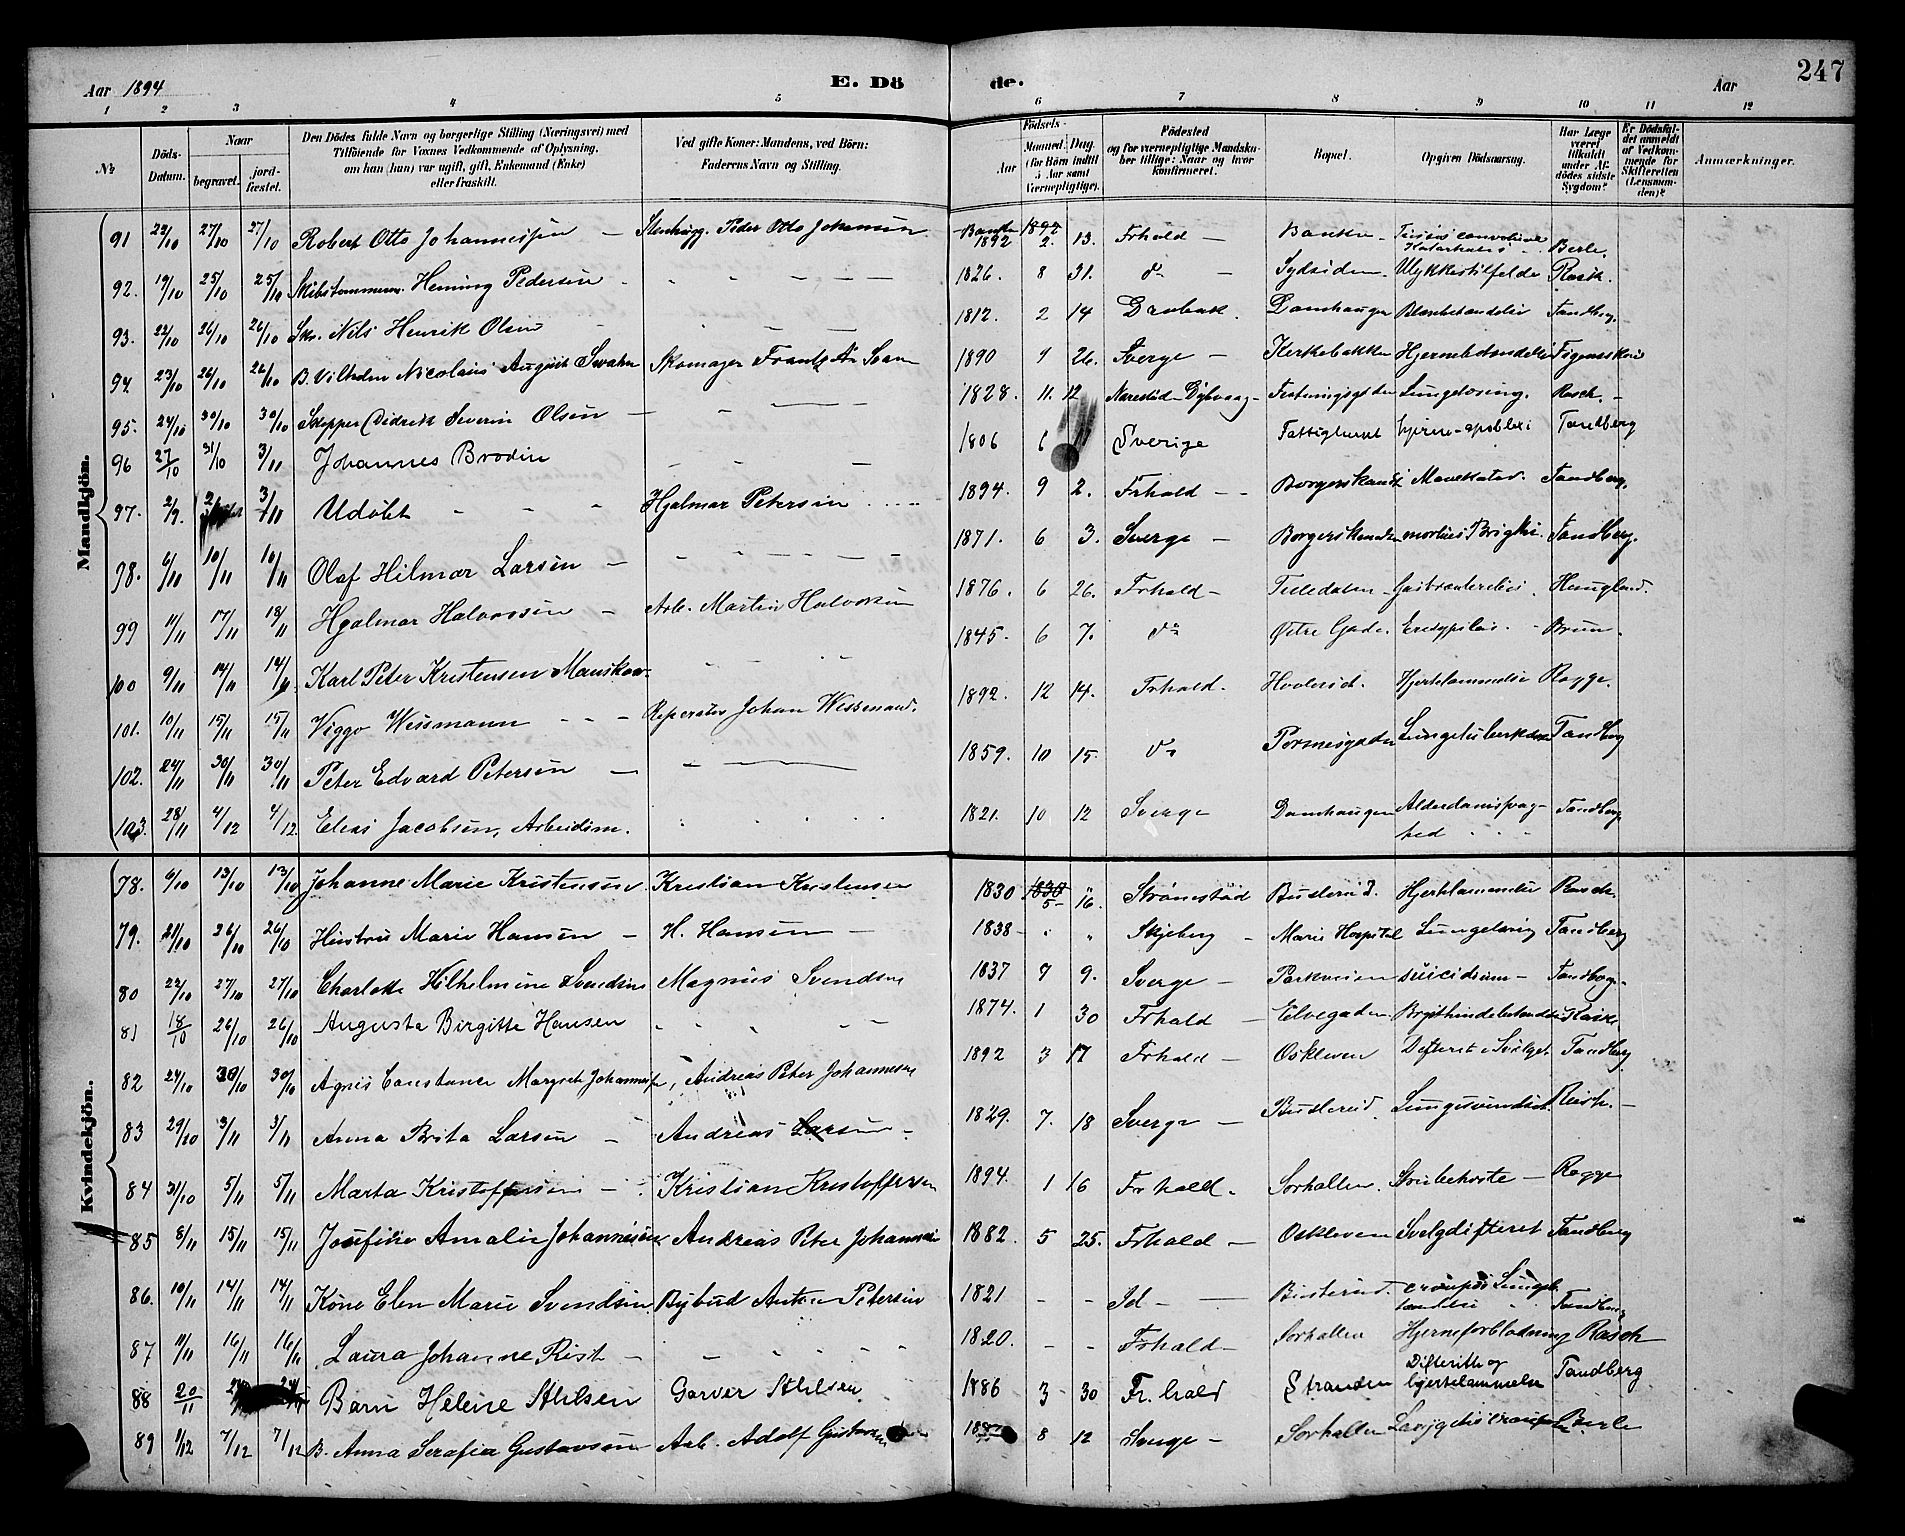 Aar 1894 E. Dö de. Aar 247
1 2 3 4 5 6 7 8 9 10 11 12
No Döds-Datum. Naar begravet. jordfæstet. Den Dödes fulde Navn og borgerlige Stilling (Næringsvei) med Tilföiende for Voxnes Vedkommende af Oplysning, om han (hun) var ugift, gift, Enkemand (Enke) eller fraskilt. Ved gifte Koner: Mandens, ved Börn: Faderens Navn og Stilling. Födsels- Aar Maaned. Dag. (for Börn indtil 5 Aar samt Værnepligtige). Födested og for værnepligtige Mandskaber tillige: Naar og hvor konfirmeret. Bopæl. Opgiven Dödsaarsag. Har Læge været tilkaldt under Afdödes sidste Sygdom? Er Dödsfaldet anmeldt af Vedkommende for Skifteretten (Lensmanden)? Anmærkninger.
Mandkjön.
91 22/10 27/10 27/10 Robert Otto Johannessen – Stenhugg. Peder Otto Johansen 1892 2. 13. Frhald – Banken – Berle.
92. 19/10 25/10 25/10 Skibstømmerm. Heming Pedersen 1826. 8 31. do – Sydsiden. Ulykkestilfelde Rasch.
93. 22/10 26/10 26/10 Skr. Nils Henrik Olsen 1812. 2 14 Drøbak. Damhaugen Tandberg.
94. 23/10 26/10 26/10 B. Vilhelm Nicolaus August Svahn Skomager Frantz Svan 1890 9 26. Sverge – Kirkebakken
95. 24/10 30/10 30/10 Skipper Didrik Severin Olsen – 1828. 11. 12 Narestad Dybvaag – Fæstningsgaden Lungelosing. Rasch. –
96 27/10 31/10 3/11 Johannes Brodin 1806 6 Sverige Fattighuset hjerne-apoblexi Tandberg
97. 2/9. 3/11 Udøbt Hjalmar Petersen 1894. 9 2. Frhald – – Borgerskandsen Mavekatar. Tandberg.
98. 6/11 10/11 10/11 Olaf Hilmar Larsen – 1871. 6 3. Sverge – Borgerskandsen morbus Brigthi. Tandberg.
99 11/11 17/11 18/11 Hjalmar Halvorsen – Arb. Martin Halvorsen 1876. 6 26. Frhald – Tistedalen – Haugland.
100 9/11 14/11 14/11 Karl Peter Kristensen Manskow 1845. 6 7. do Østre Gade. Brun.
101. 10/11 15/11 15/11 Viggo Wissmann – – – Johan Wissmand. 1892. 12 14. Frhald. Hjertelammelse Rogge.
102. 24/11 30/11 30/11 Peter Edvard Petersen – 1859. 10 15. do Lungetuberkulose Tandberg
103. 28/11 4/12 4/12 Elias Jacobsen, Arbeidsm. 1821. 10 12 Sverge Damhaugen Alderdomssvaghed Tandberg
Kvindekjön.
78. 6/10 13/10 13/10 Johanne Marie Kristensen. Kristian Kristensen 1830 5 – 16. Strømstad Busterud. Hjertelammelse Rasch.
79. 21/10 26/10 26/10 Hustru Marie Hansen – H. Hansen – 1838 – Skjeberg – Marie Hospital Tandberg
80 22/10 27/10 27/10 Charlotte Vilhelmine Svendsen Magnus Svendsen 1837 7 9. Sverge – Parkveien suicidium – Tandberg.
81 18/10 26/10 26/10 Augusta Birgitte Hansen 1874. 1 30 Frhald – Elvegaden Rasch
82 24/10 30/10 30/10 Agnes Constance Margrete Johannesen, Andreas Peter Johannesen 1892 3 17 Frhald – Oskleven Difterit i Svelget Tandberg
83 29/10 3/11 3/11 Anna Brita Larsen – Andreas Larsen – 1829. 7. 18 Sverge – Busterud. Rasch. –
84 31/10 5/11 5/11 Marta Kristoffersen – Kristian Kristoffersen 1894. 1 16 Frhald. Sorhallen. Strubehoste – Rogge
85 8/11 15/11 15/11 Josefine Amalie Johannesen Andreas Peter Johannesen 1882. 5 25. Frhald – Oskleven Svelgdifteret Tandberg
86. 10/11 14/11 14/11 Kone Elen Marie Svendsen. Bybud Anton Petersen 1821 – – Id – – Busterud. Tandberg
87 11/11 16/11 16/11 Laura Johanne Rist – 1820. – – Frhald – Sorhallen Hjerneforblødning Rasch
88 20/11 Barn Helene Stilsen Garver Stilsen 1886 3 30 Fr.hald Stranden Difterith og hjertelammelse Tandberg
89 1/12 7/12 7/12 B. Anna Serafia Gustavsen Arb. Adolf Gustavsen 8 12 Sverge – Sorhallen Berle